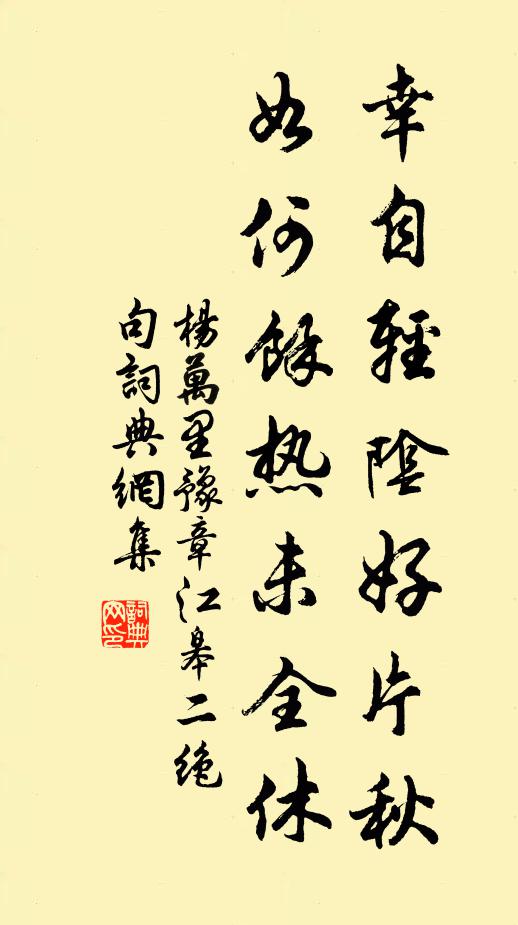 幸自輕陰好片秋
如何餘热未全休
楊萬里豫章江皋二絶
句詞典網集
詞典網印